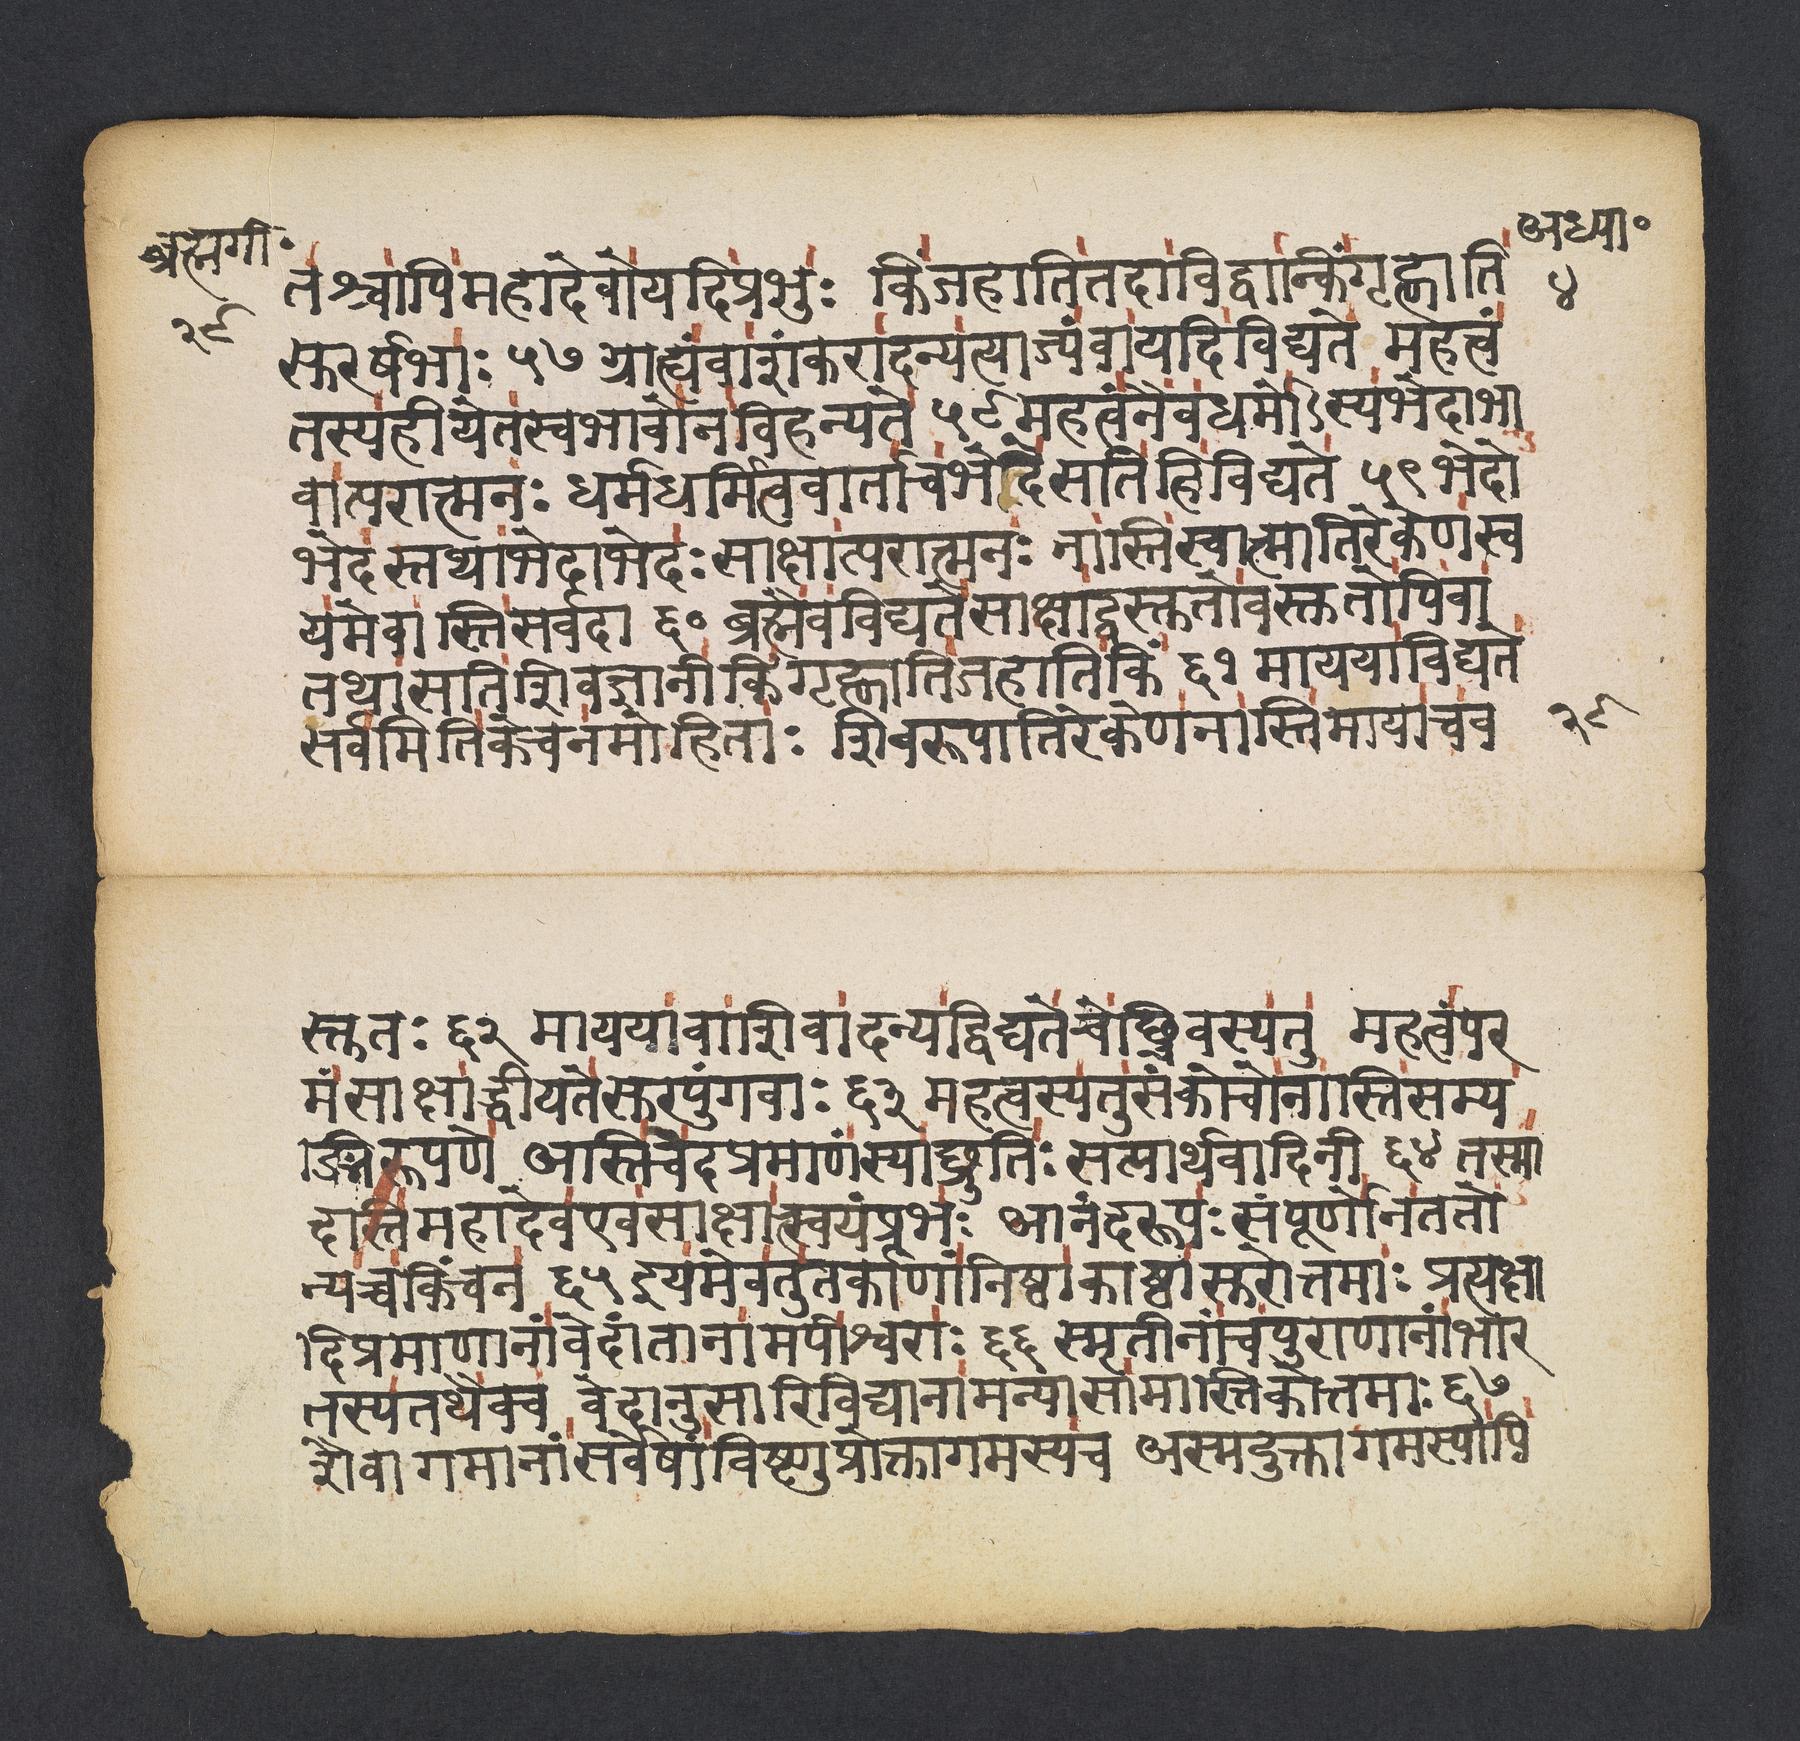 ब्रह्मगी॰
अध्या॰
२८
४
तश्चापिमहादेवोयदिप्रभुः किंजहातितदाविद्वान्किंगृह्णाति
सुरर्षभाः ५७ ग्राह्यंवाशंकरादन्यत्त्याज्यंवायदिविद्यते महत्त्वं
तस्यहीयेतस्वभावोनविहन्यते ५८ महत्वंनैवधर्मोऽस्यभेदाभा
वात्परात्मनः धर्मधर्मित्ववार्ताचभेदेसतिहिविद्यते ५९ भेदो
भेदस्तथाभेदाभेदः साक्षात्परात्मनः नास्तिस्वात्मातिरेकेणस्व
यमेवास्तिसर्वदा ६० ब्रह्मैवविद्यतेसाक्षाद्वस्तुतोवस्तुतोपिवा
तथासतिशिवज्ञानीकिंगृह्णातिजहातिकिं ६१ माययाविद्यते
सर्वमितिकेचनमोहिताः शिवरूपातिरेकेणनास्तिमायाचव
२८
स्तुतः ६२ माययावाशिवादन्यद्विद्यतेचेछिवस्यतु महत्वंपर
मंसाक्षाद्धीयतेसुरपुंगवाः ६३ महत्वस्यतुसंकोचोनास्तिसम्य
ङ्निरूपणे अस्तिचेदप्रमाणंस्याच्छ्रुतिः सत्यार्थवादिनी ६४ तस्मा
दास्तिमहादेवएवसाक्षात्स्वयंप्रभः आनंदरूपः संपूर्णोनततो
न्यच्चकिंचन ६५ इयमेवतुतर्काणांनिष्ठाकाष्ठासुरोत्तमाः प्रत्यक्षा
दिप्रमाणानांवेदांतानामपीश्वराः ६६ स्मृतीनांचपुराणानांभार
तस्यतथैवच वेदानुसारिविद्यानामन्यासामास्तिकोत्तमाः ६७
शैवागमानांसर्वेषांविष्णुप्रोक्तागमस्यच अस्मदुक्तागमस्यापि